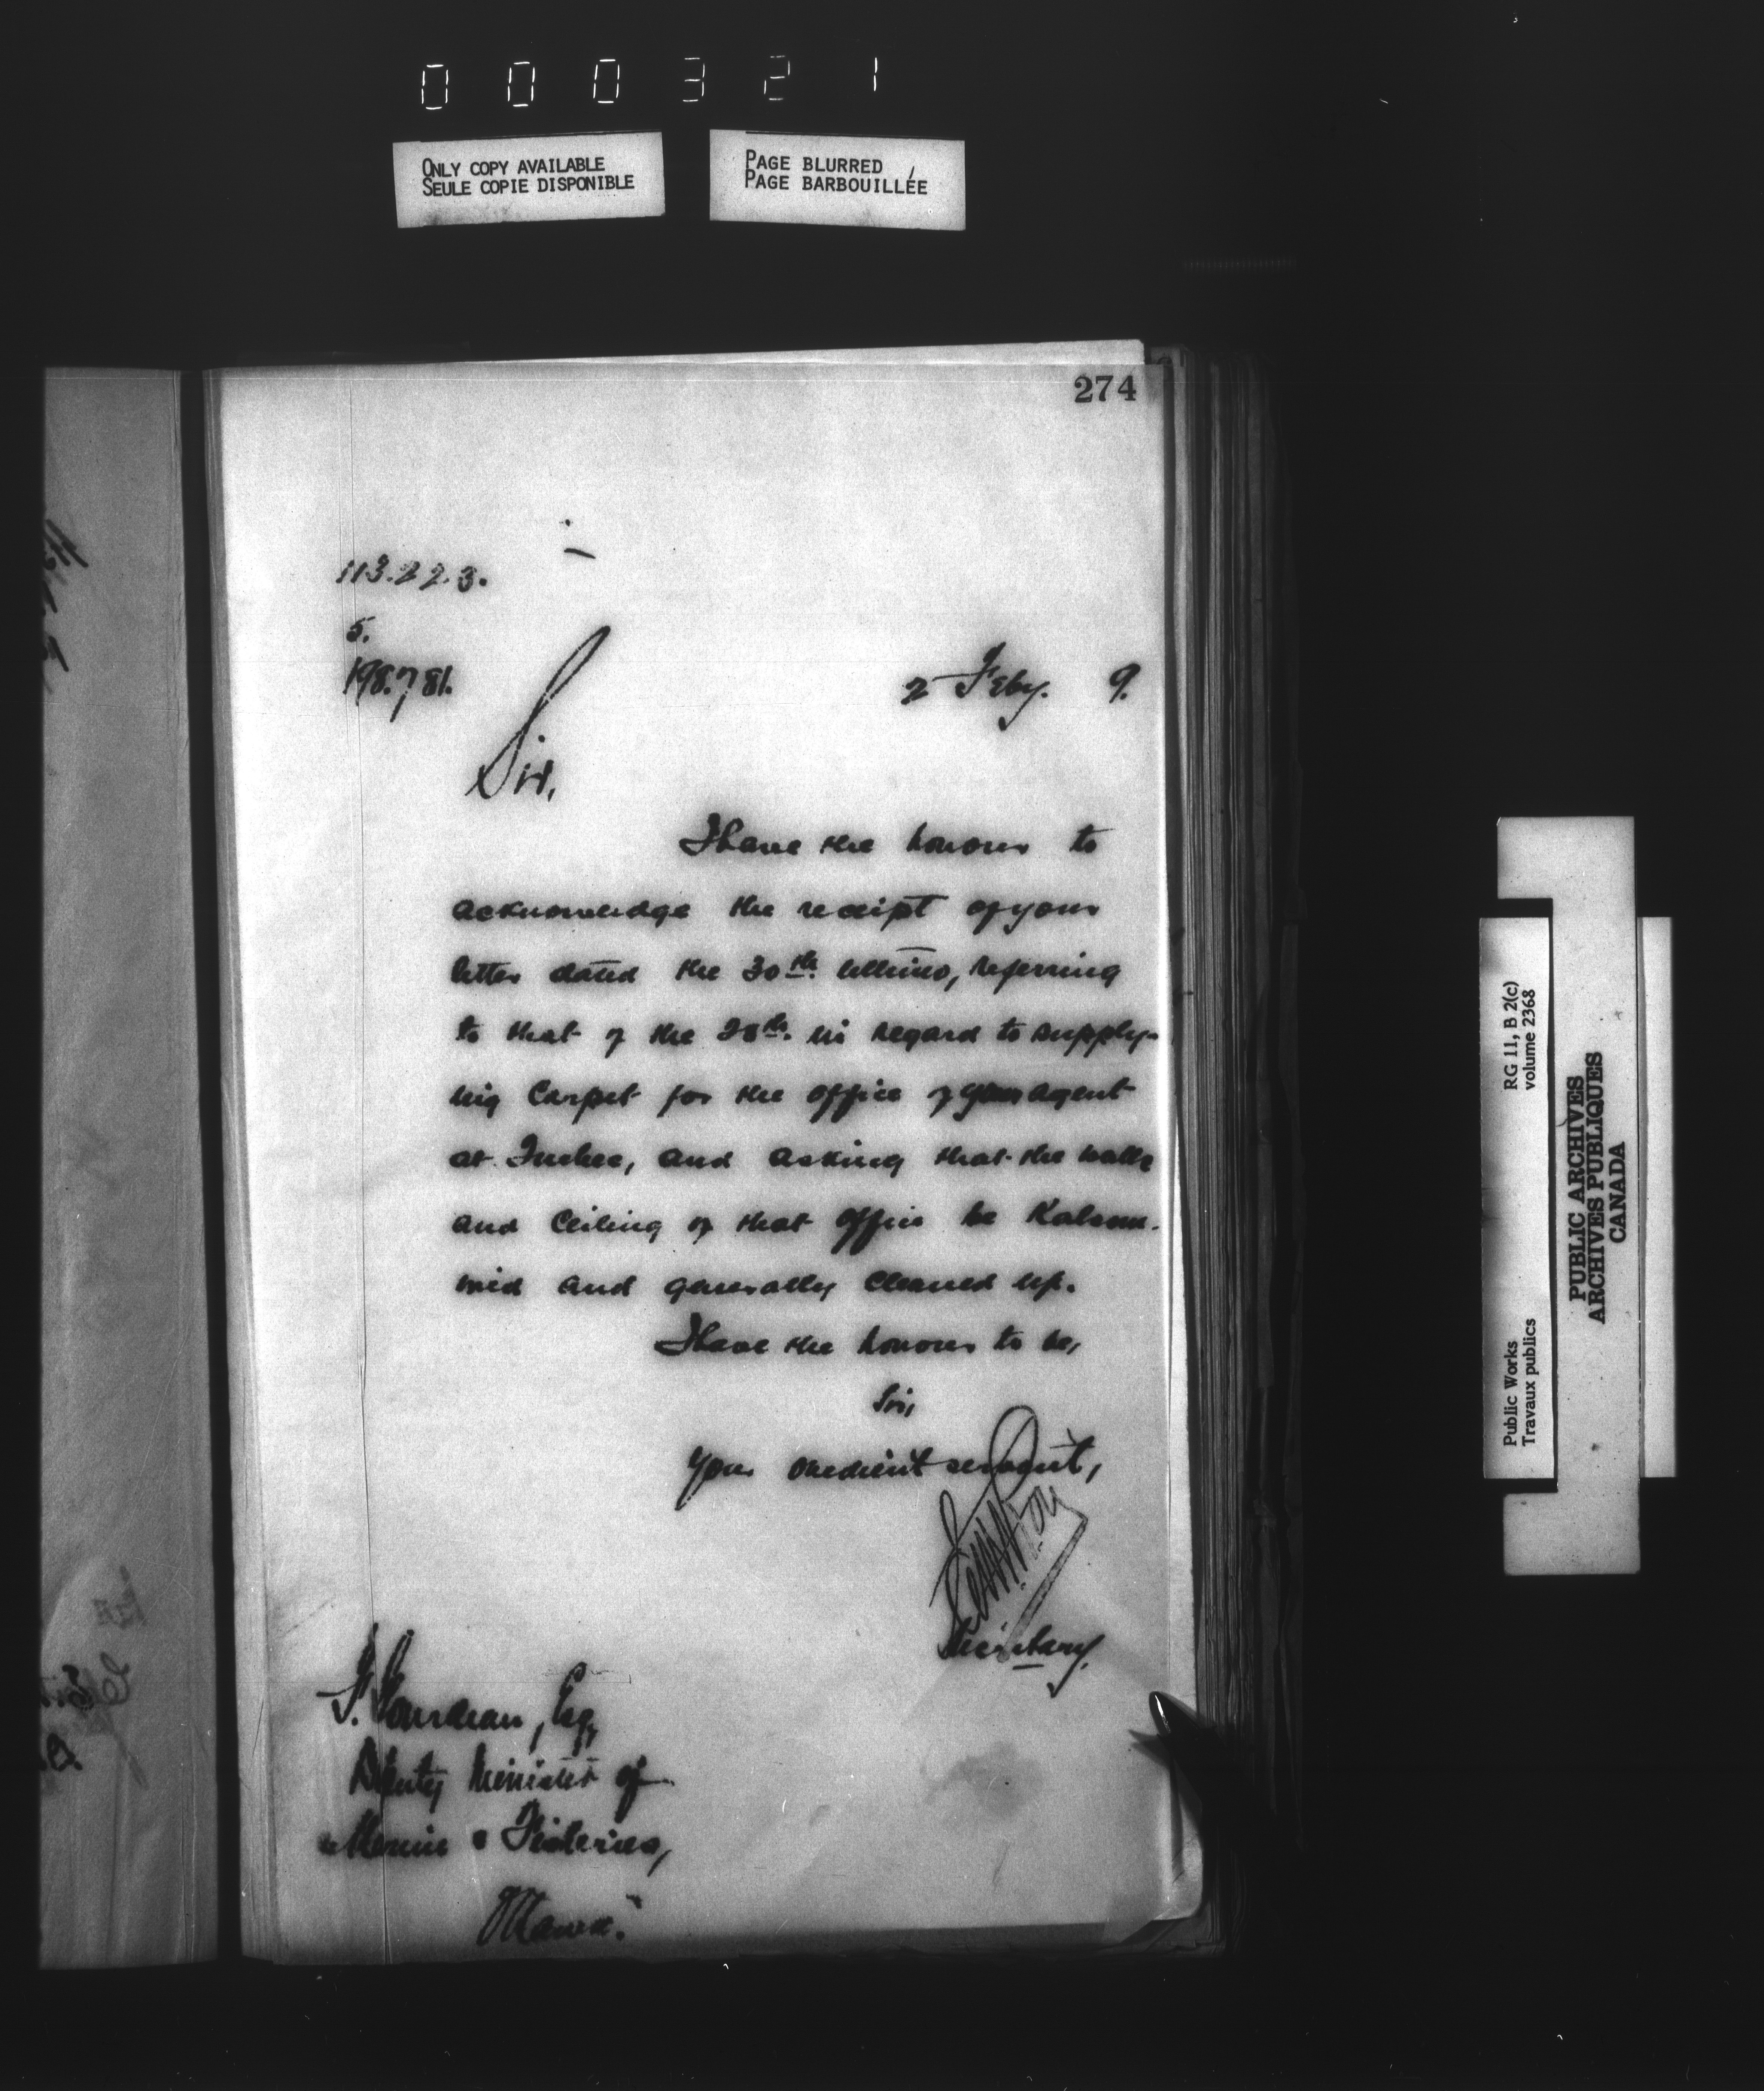 000321
ONLY COPY AVAILABLE
SEULE COPIE DISPONIBLE
PAGE BLURRED
PAGE BARBOUILLÉE
274
113.223.
5.
198.781.
2 Feby. 9.
Sir,
I have the honour to
acknowledge the receipt of your
letter dated the 30th. ultimo, referring
to that of the 28th. in regard to supply-
ing Carpet for the office of your agent
at Quebec, and asking that the walls
and Ceiling of that office be Kalsom-
ined and generally Cleaned up.
I have the honour to be,
Sir,
Your obedient servant,
Secretary.
F. Gourdeau, Esq,
Deputy Minister of
Marine & Fisheries,
Ottawa.
RG 11, B 2(c)
volume 2368
Public Works
Travaux publics
PUBLIC ARCHIVES
ARCHIVES PUBLIQUES
CANADA